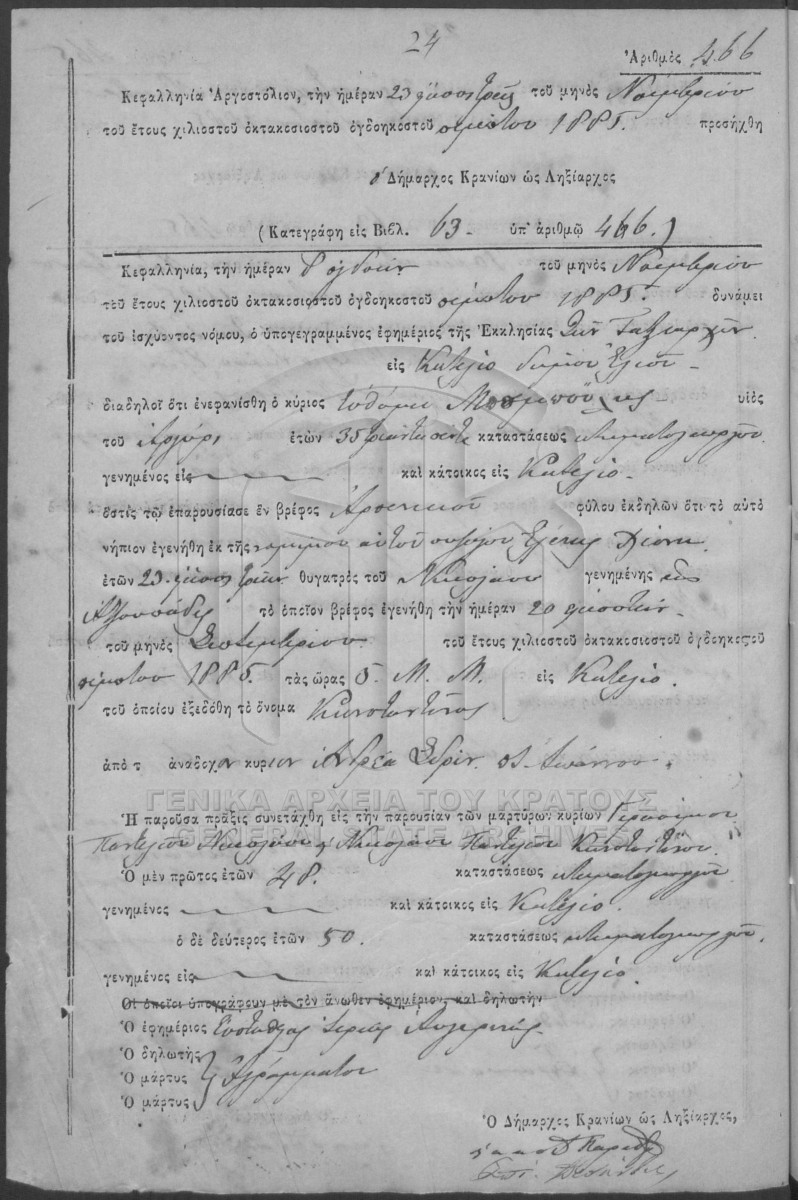 24
Ἀριθμὸς 466
Κεφαλληνία Ἀργοστόλιον, τὴν ἡμέραν 23 εἴκοσι τρεῖς τοῦ μηνὸς Νοεμβρίου
τοῦ ἔτους χιλιοστοῦ ὀκτακοσιοστοῦ ὀγδοηκοστοῦ πέμπτου 1885. προσήχθη
ὁ Δήμαρχος Κρανίων ὡς Ληξίαρχος
(Κατεγράφη εἰς Βιβλ. 63 - ὑπ' ἀριθμῷ 466.)
Κεφαλληνία, τὴν ἡμέραν 8 ὀγδόην τοῦ μηνὸς Νοεμβρίου
τοῦ ἔτους χιλιοστοῦ ὀκτακοσιοστοῦ ὀγδοηκοστοῦ πέμπτου 1885. δυνάμει
τοῦ ἰσχύοντος νόμου, ὁ ὑπογεγραμμένος ἐφημέριος τῆς Ἐκκλησίας Τῶν Ταξιαρχῶν
εἰς Κατελιὸ δήμου Ἐλιοῦ -
διαδηλοῖ ὅτι ἐνεφανίσθη ὁ κύριος υἱὸς
τοῦ ἐτῶν 35 τριάντα πέντε καταστάσεως κτηματογεωργοῦ.
γενημένος εἰς καὶ κάτοικος εἰς Κατελιό.
ὅστις τῷ ἐπαρουσίασε ἓν βρέφος Ἀρσενικοῦ φύλου ἐκδηλῶν ὅτι τὸ αὐτὸ
νήπιον ἐγενήθη ἐκ τῆς νομίμου αὐτοῦ συζύγου Ἑλένης
ἐτῶν 23. εἴκοσι τριῶν θυγατρὸς τοῦ Νικολάου γενημένης εἰς
τὸ ὁποῖον βρέφος ἐγενήθη τὴν ἡμέραν 20 εἰκοστὴν -
τοῦ μηνὸς Σεπτεμβρίου τοῦ ἔτους χιλιοστοῦ ὀκτακοσιοστοῦ ὀγδοηκοστοῦ
πέμπτου 1885. τὰς ὥρας 5 Μ. Μ. εἰς Κατελιό.
τοῦ ὁποίου ἐξεδόθη τὸ ὄνομα Κωνσταντῖνος
ἀπὸ τ ἀνάδοχον κύριον Ἀνδρέα Ἰωάννου.
Ἡ παροῦσα πρᾶξις συνετάχθη εἰς τὴν παρουσίαν τῶν μαρτύρων κυρίων Γερασίμου
Παντελιοῦ Νικολάου & Νικολάου Παντελιοῦ Κωνσταντίνου.
Ὁ μὲν πρῶτος ἐτῶν 48. καταστάσεως κτηματογεωργοῦ
γενημένος καὶ κάτοικος εἰς Κατελιό.
ὁ δὲ δεύτερος ἐτῶν 50. καταστάσεως κτηματογεωργοῦ.
γενημένος εἰς καὶ κάτοικος εἰς Κατελιό.
Οἱ ὁποῖοι ὑπογράφουν μὲ τὸν ἄνωθεν ἐφημέριον, καὶ δηλωτήν
Ὁ ἐφημέριος Εὐστάθιος ἱερεὺς Αὐγερινός.
Ὁ δηλωτὴς
Ὁ μάρτυς } Ἀγράμματοι
Ὁ μάρτυς
Ὁ Δήμαρχος Κρανίων ὡς Ληξίαρχος,
ΓΕΝΙΚΑ ΑΡΧΕΙΑ ΤΟΥ ΚΡΑΤΟΥΣ
GENERAL STATE ARCHIVES